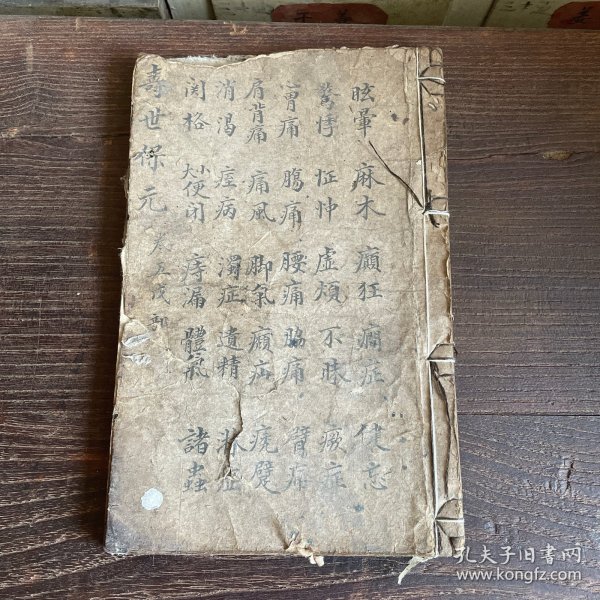 眩暈 麻木 癲狂 癇症 健忘
驚悸 怔忡 虛煩 不眛 厥症
胷痛 腸痛 腰痛 脇痛 臂痛
肩背痛 痛風 脚氣 㿗疝 痿躄
消渴 痙病 濁症 遺精 淋症
関格 大小便闭 痔漏 體氣 諸蟲
壽世保元 卷五戊部
孔夫子旧书网
www.kongfz.com